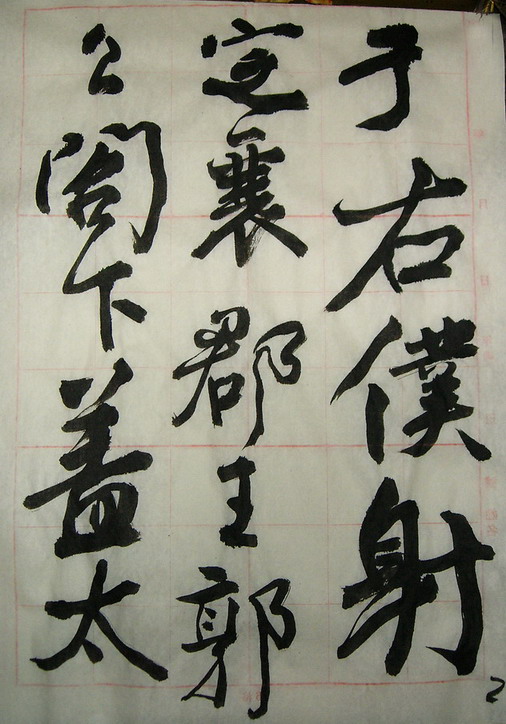 于右僕射
定襄郡王郭
公閣下蓋太
2